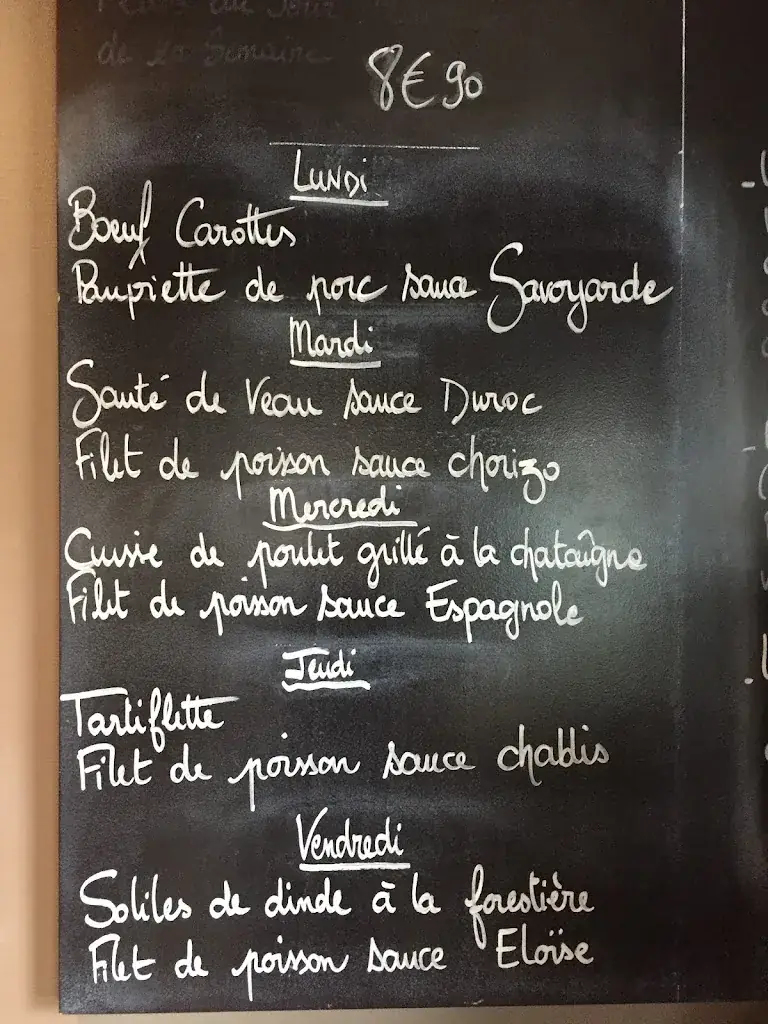 Plats du Jour
de la Semaine
8€90
Lundi
Boeuf Carottes
Paupiette de porc sauce Savoyarde
Mardi
Sauté de Veau sauce Duroc
Filet de poisson sauce chorizo
Mercredi
Cuisse de poulet grillé à la chataîgne
Filet de poisson sauce Espagnole
Jeudi
Tartiflette
Filet de poisson sauce chablis
Vendredi
Soliles de dinde à la forestière
Filet de poisson sauce Eloïse